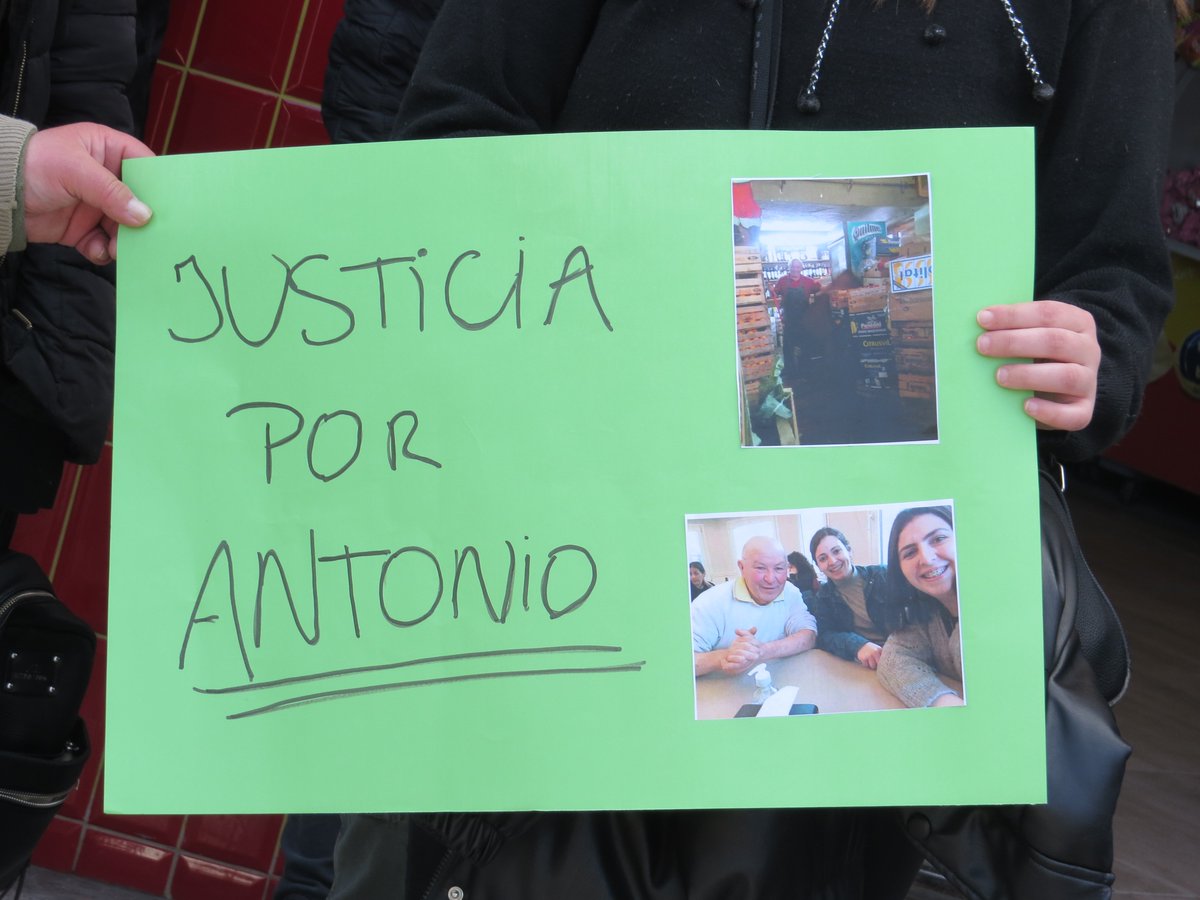 JUSTICIA
POR
ANTONIO